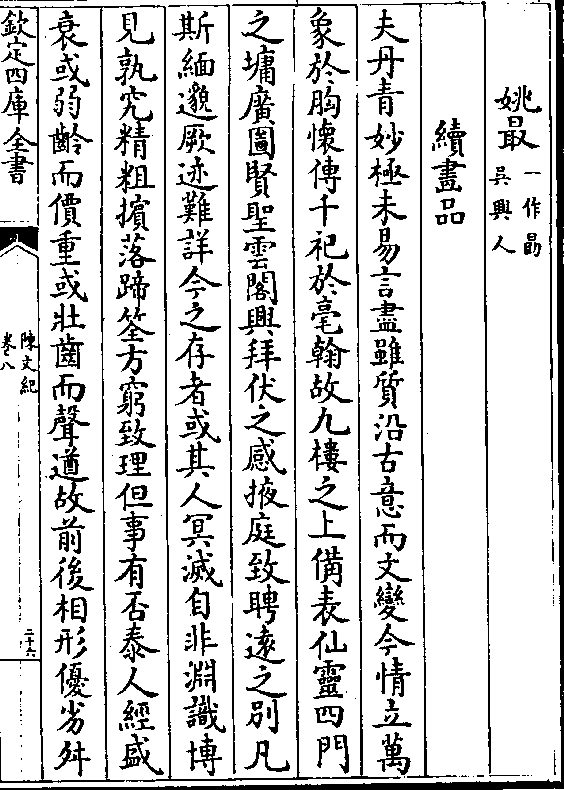 姚最一作勗
吳興人
續畫品
夫丹青妙極未易言盡雖質沿古意而文變今情立萬
象於胸懷傳千祀於毫翰故九樓之上備表仙靈四門
之墉廣圖賢聖雲閣興拜伏之感掖庭致聘遠之別凡
斯緬邈厥迹難詳今之存者或其人冥滅自非淵識博
見孰究精粗擯落蹄筌方窮致理但事有否泰人經盛
衰或弱齡而價重或壯齒而聲遒故前後相形優劣舛
欽定四庫全書
陳文紀
卷八
二十六